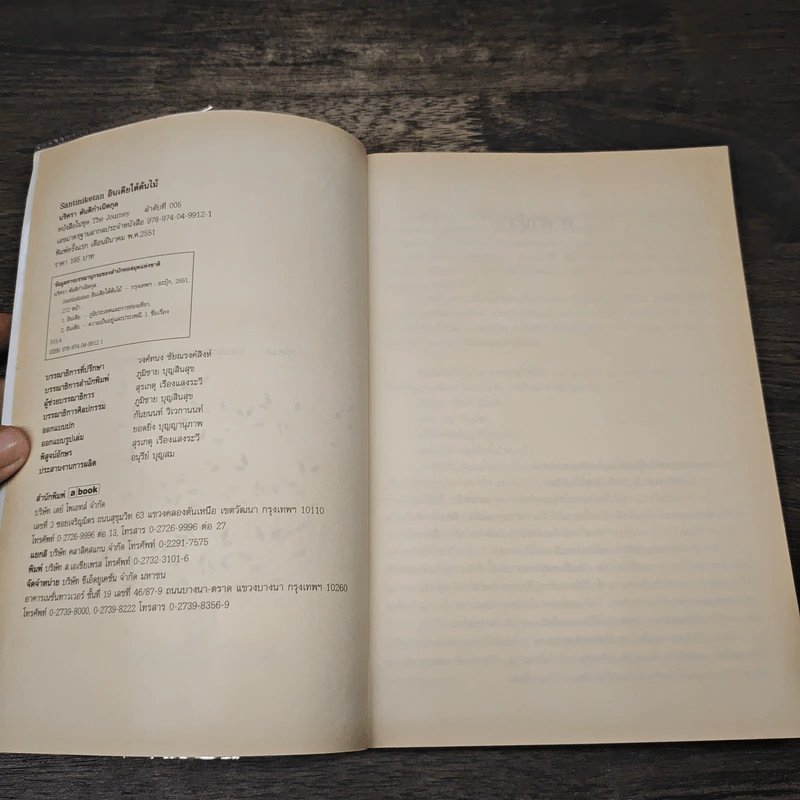 Santiniketan อินเดียใต้ต้นไม้
บริศรา ตันติกำเนิดกุล
หนังสือในชุด The Journey ลำดับที่ 005
เลขมาตรฐานสากลประจำหนังสือ 978-974-04-9912-1
พิมพ์ครั้งแรก เดือนมีนาคม พ.ศ.2551
ราคา 185 บาท
ข้อมูลทางบรรณานุกรมของสำนักหอสมุดแห่งชาติ
บริศรา ตันติกำเนิดกุล
Santiniketan อินเดียใต้ต้นไม้ -- กรุงเทพฯ : อะบุ๊ก, 2551.
272 หน้า
1. อินเดีย -- ภูมิประเทศและการท่องเที่ยว.
2. อินเดีย -- ความเป็นอยู่และประเพณี I ชื่อเรื่อง
ISBN 978-974-04-9912-1
บรรณาธิการที่ปรึกษา วงศ์ทนง ชัยณรงค์สิงห์
บรรณาธิการสำนักพิมพ์ ภูมิชาย บุญสินสุข
ผู้ช่วยบรรณาธิการ สุรเกตุ เรืองแสงระวี
บรรณาธิการศิลปกรรม ภูมิชาย บุญสินสุข
ออกแบบปก กันยนนท์ วิเวกานนท์
ออกแบบรูปเล่ม ยอดยิ่ง บุญญานุภาพ
พิสูจน์อักษร สุรเกตุ เรืองแสงระวี
ประสานงานการผลิต อนุรีย์ บุญสม
สำนักพิมพ์ a book
บริษัท เดย์ โพเอทส์ จำกัด
เลขที่ 3 ซอยเจริญมิตร ถนนสุขุมวิท 63 แขวงคลองตันเหนือ เขตวัฒนา กรุงเทพฯ 10110
โทรศัพท์ 0-2726-9996 ต่อ 13, โทรสาร 0-2726-9996 ต่อ 27
แยกสี บริษัท คลาสิคสแกน จำกัด โทรศัพท์ 0-2291-7575
พิมพ์ บริษัท ส.เอเชียเพรส โทรศัพท์ 0-2732-3101-6
จัดจำหน่าย บริษัท ซีเอ็ดยูเคชั่น จำกัด มหาชน
อาคารเนชั่นทาวเวอร์ ชั้นที่ 19 เลขที่ 46/87-9 ถนนบางนา-ตราด แขวงบางนา กรุงเทพฯ 10260
โทรศัพท์ 0-2739-8000, 0-2739-8222 โทรสาร 0-2739-8356-9